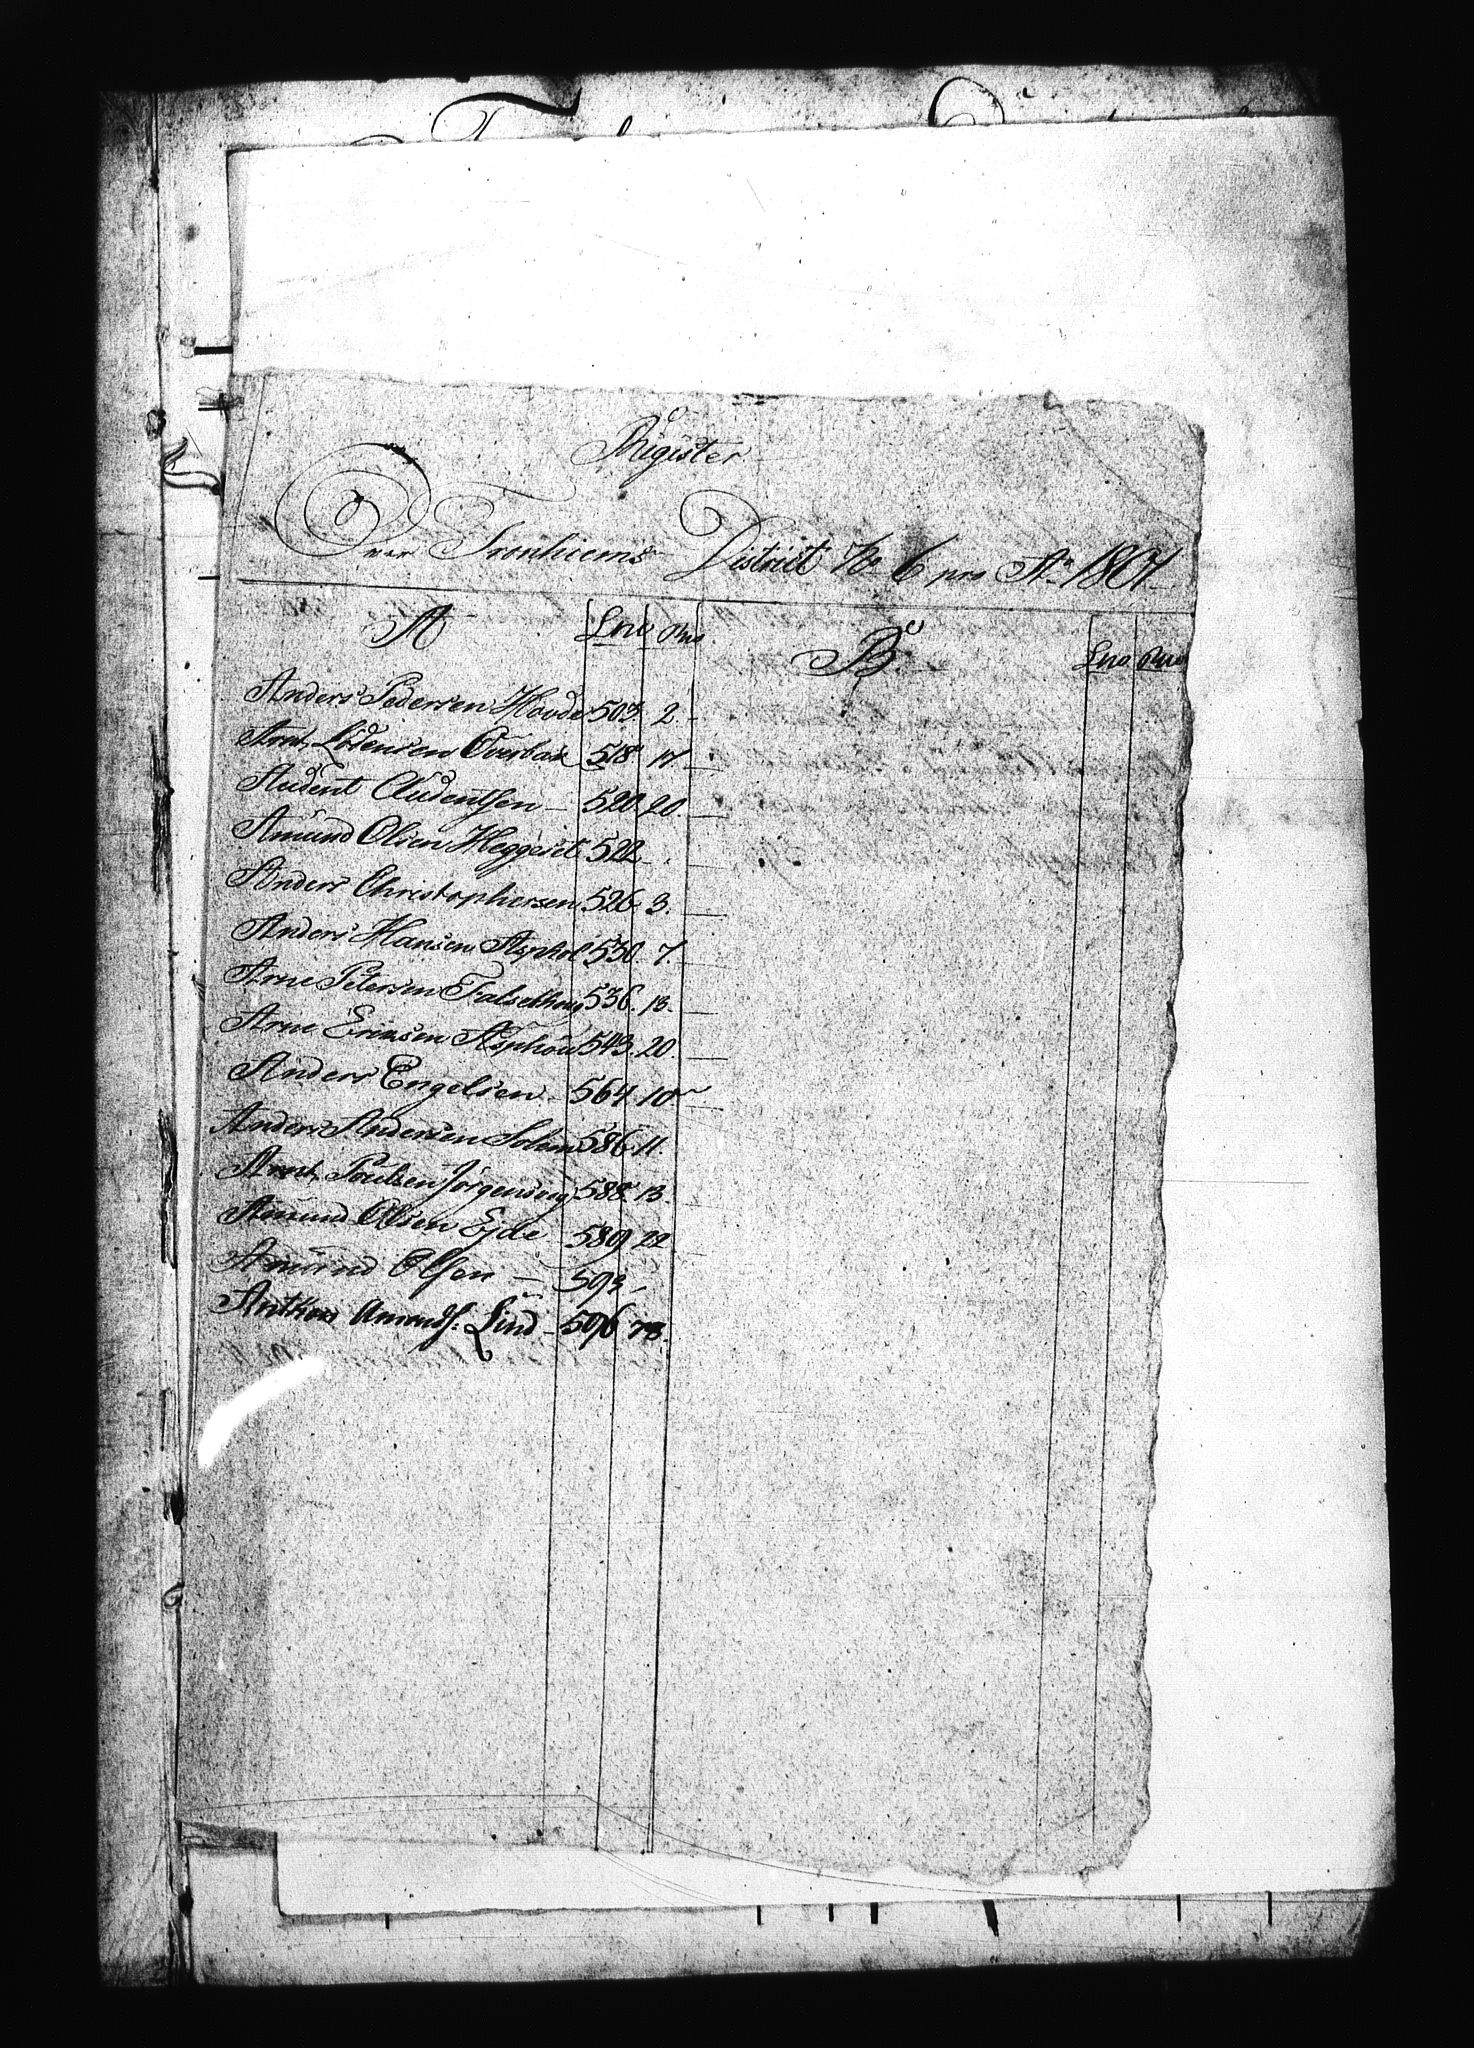 Rigister
Over Tronhiems District No 6 pro Ao 1801.
A Lno Pno B. Lno Pno
Anders Pedersen Hovde 503. 2.
Arnt Lorensen Overbak 518. 17.
Audent Audentsen 520. 20.
Amund Olsen Heggeset 522.
Anders Christophersen 526. 3.
Anders Hansen Asphol 530. 7.
Arne Petersen Falsethoug 536. 13.
Arne Ericksen Asphou 543. 20.
Anders Engelsen 564. 10
Anders Andersen Solem 586. 11.
Arnt Poulsen Jörgensvog 588. 13.
Amund Olsen Ejde 589 22
Amund Olsen 593
Anthon Amunds: Lind 596